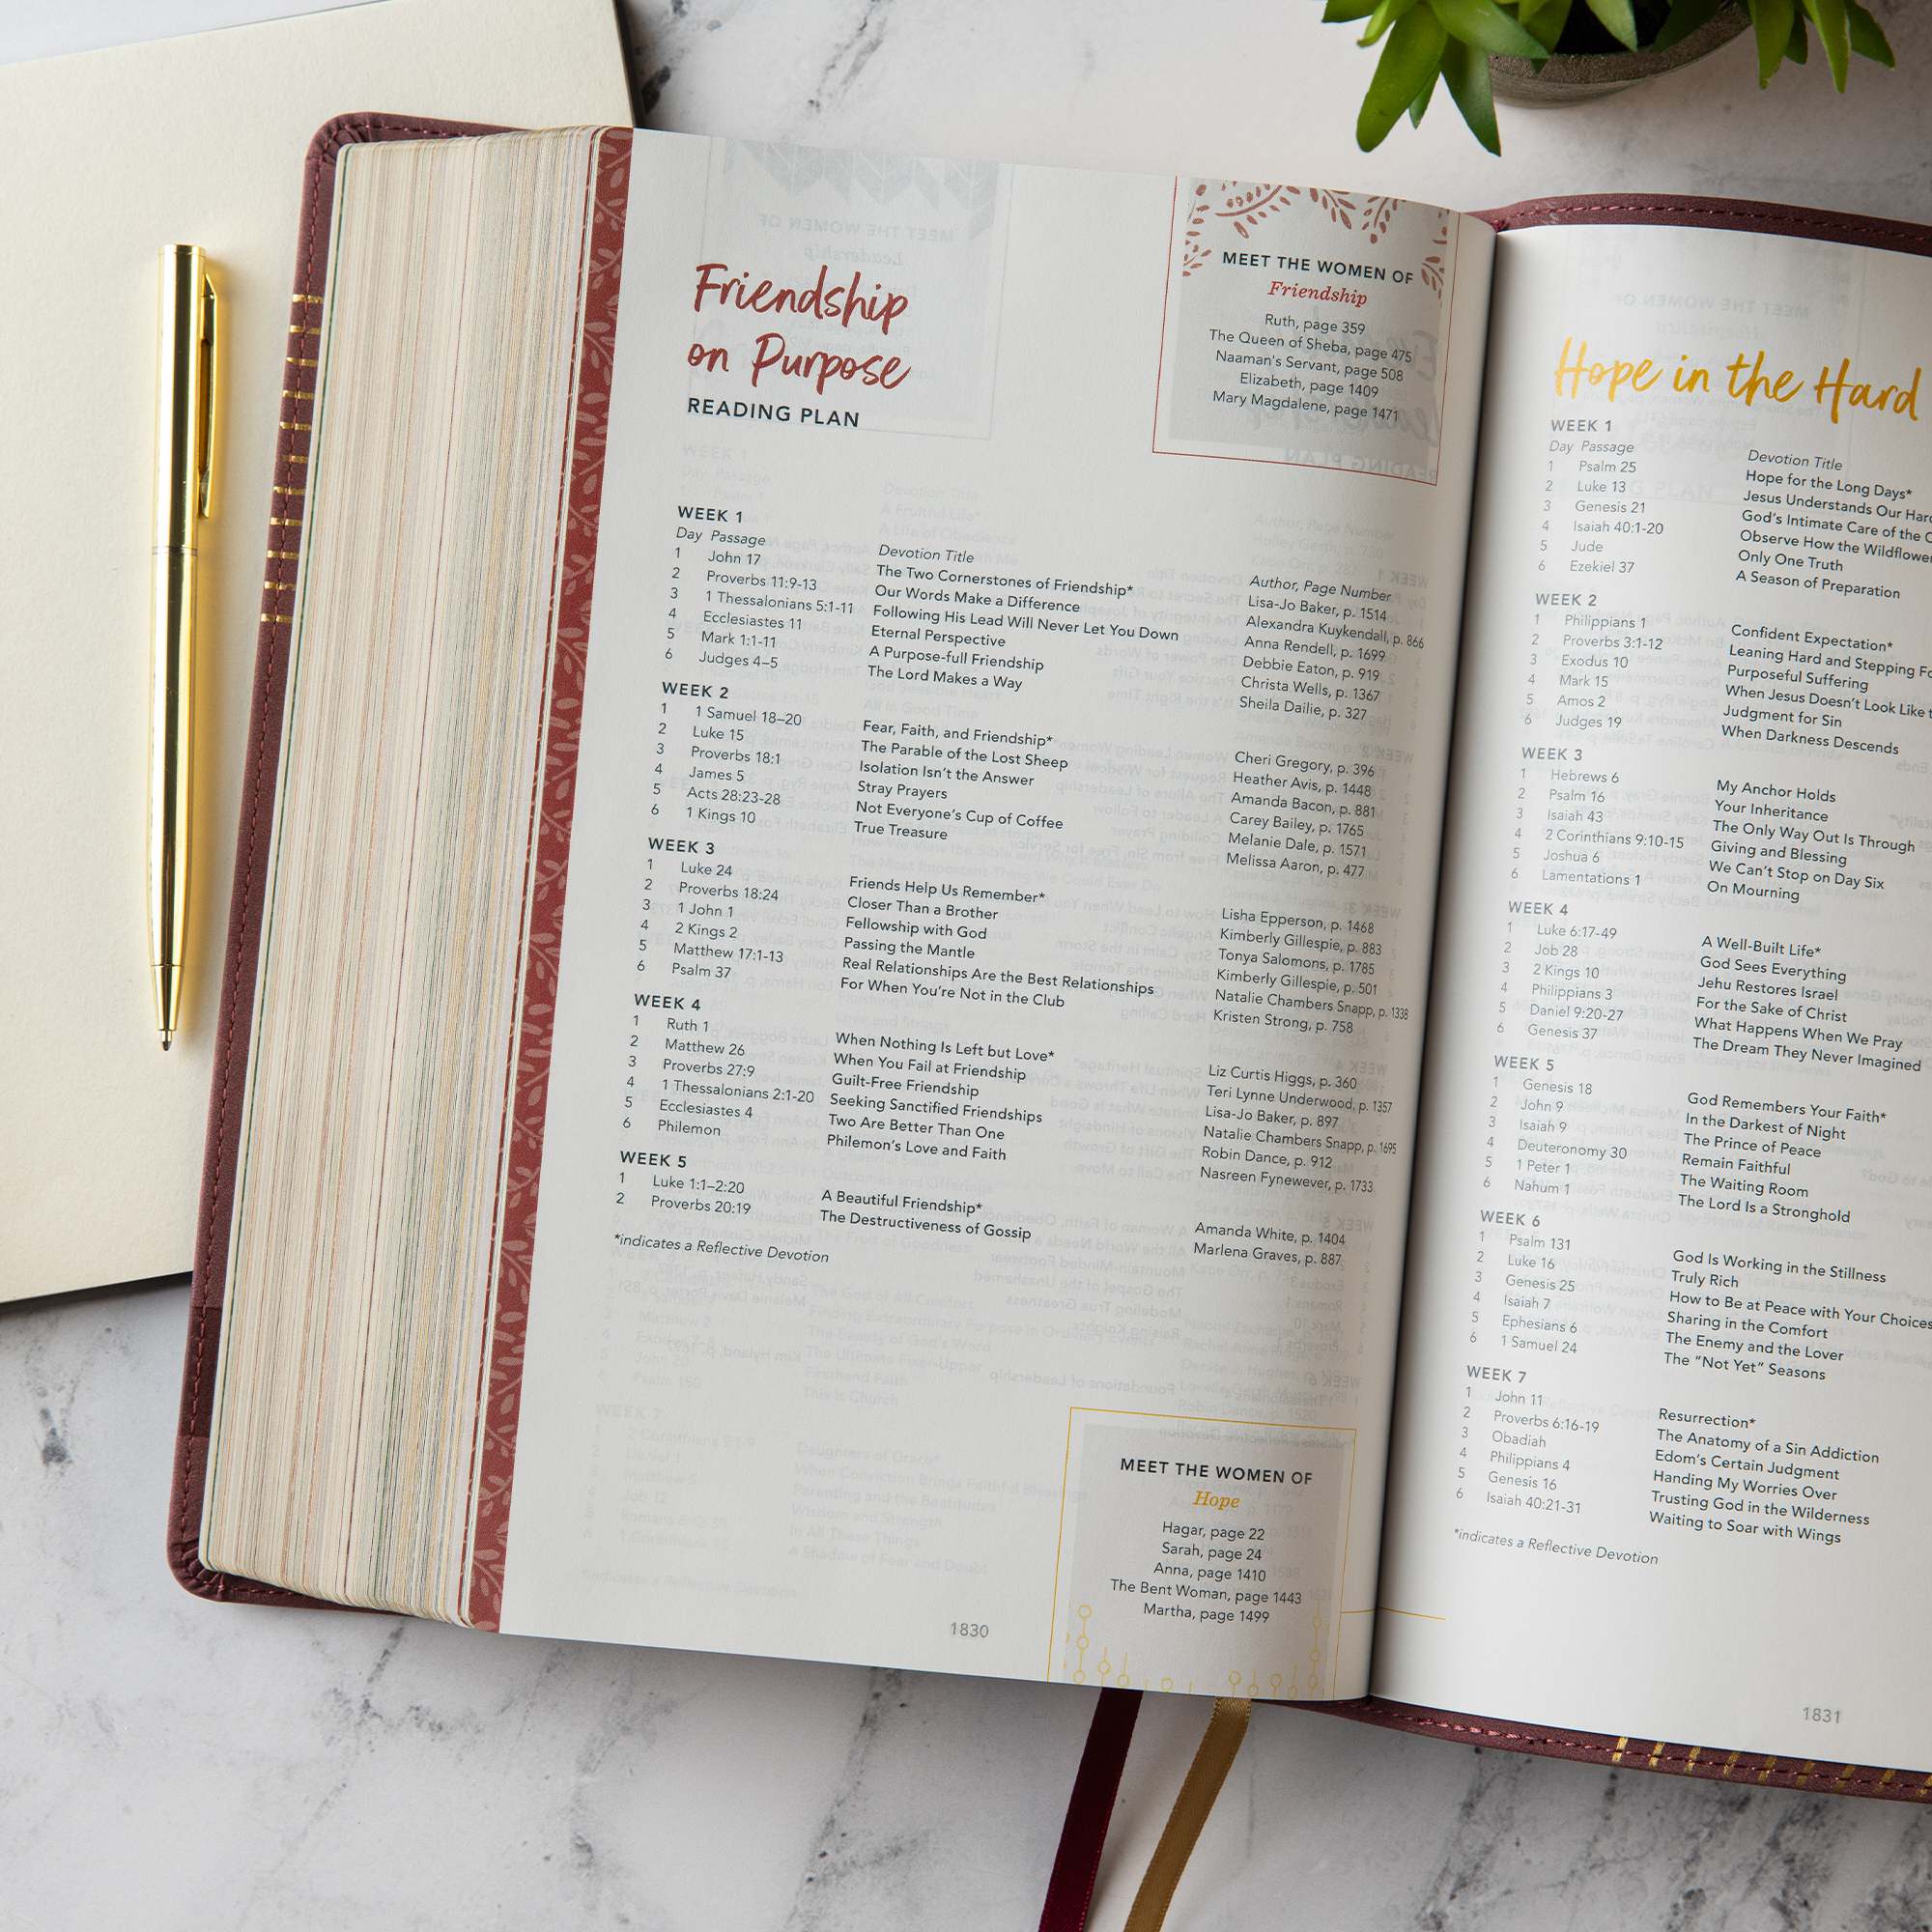 Friendship
on Purpose
READING PLAN
MEET THE WOMEN OF
Friendship
Ruth, page 359
The Queen of Sheba, page 475
Naaman's Servant, page 508
Elizabeth, page 1409
Mary Magdalene, page 1471
WEEK 1
Day Passage Devotion Title Author, Page Number
1 John 17 The Two Cornerstones of Friendship* Lisa-Jo Baker, p. 1514
2 Proverbs 11:9-13 Our Words Make a Difference Alexandra Kuykendall, p. 866
3 1 Thessalonians 5:1-11 Following His Lead Will Never Let You Down Anna Rendell, p. 1699
4 Ecclesiastes 11 Eternal Perspective Debbie Eaton, p. 919
5 Mark 1:1-11 A Purpose-full Friendship Christa Wells, p. 1367
6 Judges 4–5 The Lord Makes a Way Sheila Dailie, p. 327
WEEK 2
1 1 Samuel 18–20 Fear, Faith, and Friendship* Cheri Gregory, p. 396
2 Luke 15 The Parable of the Lost Sheep Heather Avis, p. 1448
3 Proverbs 18:1 Isolation Isn't the Answer Amanda Bacon, p. 881
4 James 5 Stray Prayers Carey Bailey, p. 1765
5 Acts 28:23-28 Not Everyone's Cup of Coffee Melanie Dale, p. 1571
6 1 Kings 10 True Treasure Melissa Aaron, p. 477
WEEK 3
1 Luke 24 Friends Help Us Remember* Lisha Epperson, p. 1468
2 Proverbs 18:24 Closer Than a Brother Kimberly Gillespie, p. 883
3 1 John 1 Fellowship with God Tonya Salomons, p. 1785
4 2 Kings 2 Passing the Mantle Kimberly Gillespie, p. 501
5 Matthew 17:1-13 Real Relationships Are the Best Relationships Natalie Chambers Snapp, p. 1338
6 Psalm 37 For When You're Not in the Club Kristen Strong, p. 758
WEEK 4
1 Ruth 1 When Nothing Is Left but Love* Liz Curtis Higgs, p. 360
2 Matthew 26 When You Fail at Friendship Teri Lynne Underwood, p. 1357
3 Proverbs 27:9 Guilt-Free Friendship Lisa-Jo Baker, p. 897
4 1 Thessalonians 2:1-20 Seeking Sanctified Friendships Natalie Chambers Snapp, p. 1695
5 Ecclesiastes 4 Two Are Better Than One Robin Dance, p. 912
6 Philemon Philemon's Love and Faith Nasreen Fynewever, p. 1733
WEEK 5
1 Luke 1:1–2:20 A Beautiful Friendship* Amanda White, p. 1404
2 Proverbs 20:19 The Destructiveness of Gossip Marlena Graves, p. 887
*indicates a Reflective Devotion
MEET THE WOMEN OF
Hope
Hagar, page 22
Sarah, page 24
Anna, page 1410
The Bent Woman, page 1443
Martha, page 1499
1830
Hope in the Hard
WEEK 1
Day Passage Devotion Title
1 Psalm 25 Hope for the Long Days*
2 Luke 13 Jesus Understands Our
3 Genesis 21 God's Intimate Care of the
4 Isaiah 40:1-20 Observe How the
5 Jude Only One Truth
6 Ezekiel 37 A Season of Preparation
WEEK 2
1 Philippians 1 Confident Expectation*
2 Proverbs 3:1-12 Leaning Hard and Stepping
3 Exodus 10 Purposeful Suffering
4 Mark 15 When Jesus Doesn't Look Like
5 Amos 2 Judgment for Sin
6 Judges 19 When Darkness Descends
WEEK 3
1 Hebrews 6 My Anchor Holds
2 Psalm 16 Your Inheritance
3 Isaiah 43 The Only Way Out Is Through
4 2 Corinthians 9:10-15 Giving and Blessing
5 Joshua 6 We Can't Stop on Day Six
6 Lamentations 1 On Mourning
WEEK 4
1 Luke 6:17-49 A Well-Built Life*
2 Job 28 God Sees Everything
3 2 Kings 10 Jehu Restores Israel
4 Philippians 3 For the Sake of Christ
5 Daniel 9:20-27 What Happens When We Pray
6 Genesis 37 The Dream They Never Imagined
WEEK 5
1 Genesis 18 God Remembers Your Faith*
2 John 9 In the Darkest of Night
3 Isaiah 9 The Prince of Peace
4 Deuteronomy 30 Remain Faithful
5 1 Peter 1 The Waiting Room
6 Nahum 1 The Lord Is a Stronghold
WEEK 6
1 Psalm 131 God Is Working in the Stillness
2 Luke 16 Truly Rich
3 Genesis 25 How to Be at Peace with Your Choices
4 Isaiah 7 Sharing in the Comfort
5 Ephesians 6 The Enemy and the Lover
6 1 Samuel 24 The "Not Yet" Seasons
WEEK 7
1 John 11 Resurrection*
2 Proverbs 6:16-19 The Anatomy of a Sin Addiction
3 Obadiah Edom's Certain Judgment
4 Philippians 4 Handing My Worries Over
5 Genesis 16 Trusting God in the Wilderness
6 Isaiah 40:21-31 Waiting to Soar with Wings
*indicates a Reflective Devotion
1831